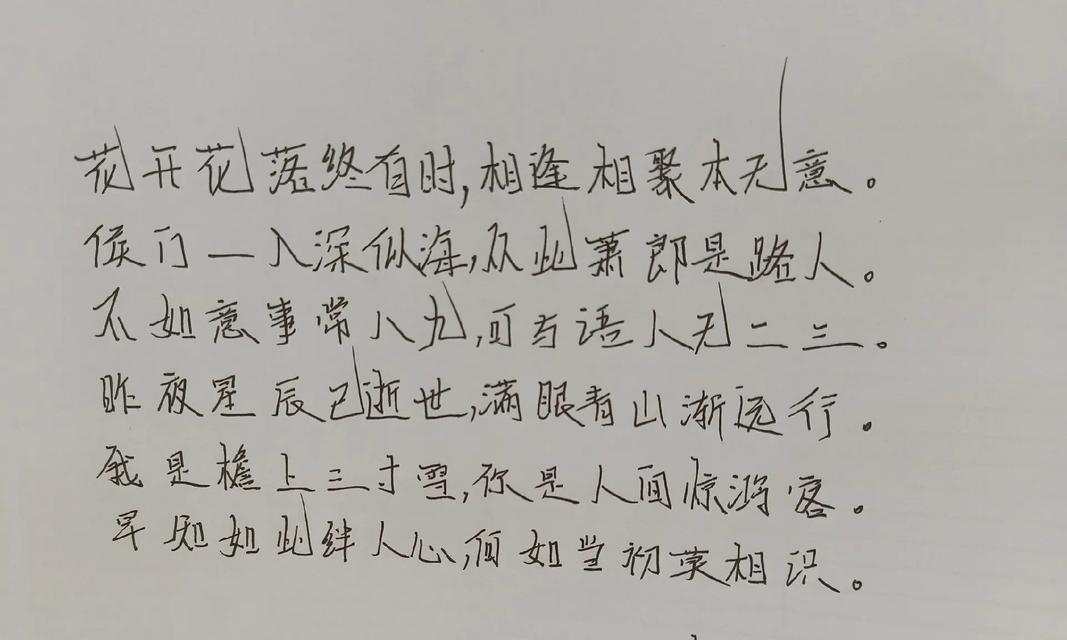 花开花落终有时,相逢相聚本无意。
侯门一入深似海,从此萧郎是路人。
不如意事常八九,可与语人无二三。
昨夜星辰已逝世,满眼青山渐远行。
我是檐上三寸雪,你是人间惊鸿客。
早知如此绊人心,何如当初莫相识。